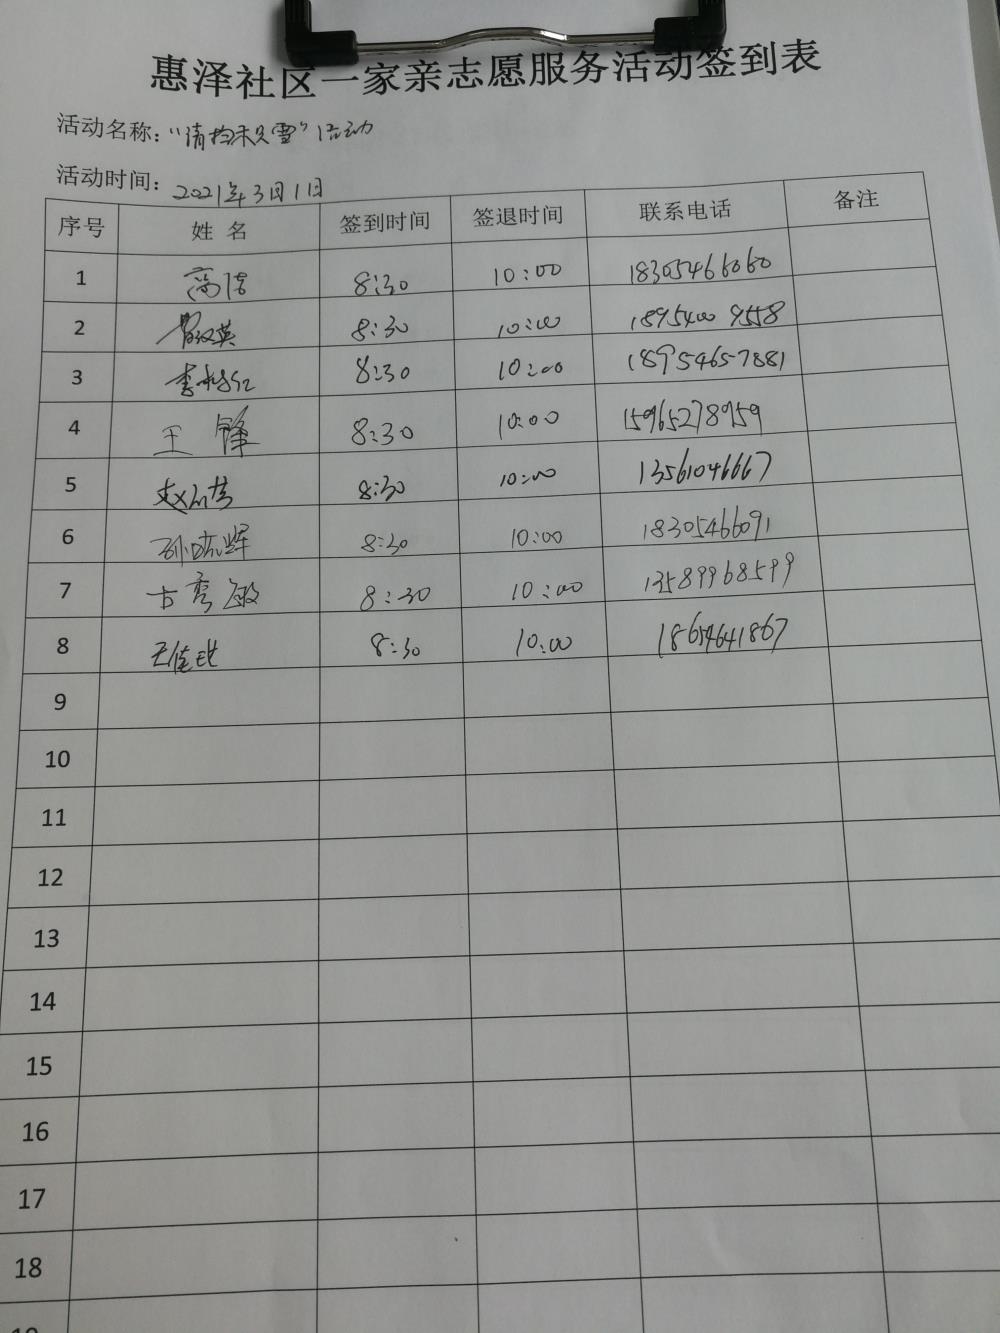 惠泽社区一家亲志愿服务活动签到表
活动名称：“清扫积雪”活动
活动时间：2021年3月1日
序号 姓名 签到时间 签退时间 联系电话 备注
1 高洁 8:30 10:00 18305466060
2 8:30 10:00 18954009558
3 李 红 8:30 10:00 18954657881
4 王锋 8:30 10:00 15965278959
5 赵 8:30 10:00 13561046667
6 孙晓辉 8:30 10:00 18305466091
7 古弯敏 8:30 10:00 13589968599
8 王佳 8:30 10:00 18654641867
9
10
11
12
13
14
15
16
17
18
19